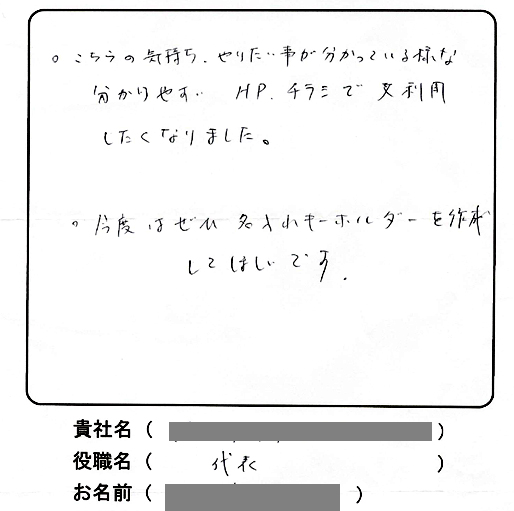 。こちらの気持ち、やりたい事が分かっている様な
分かりやすい HP、チラシで 又利用
したくなりました。
。今度はぜひ 名入れキーホルダーを作成
してほしいです.
貴社名（ ）
役職名（ 代表 ）
お名前（ ）